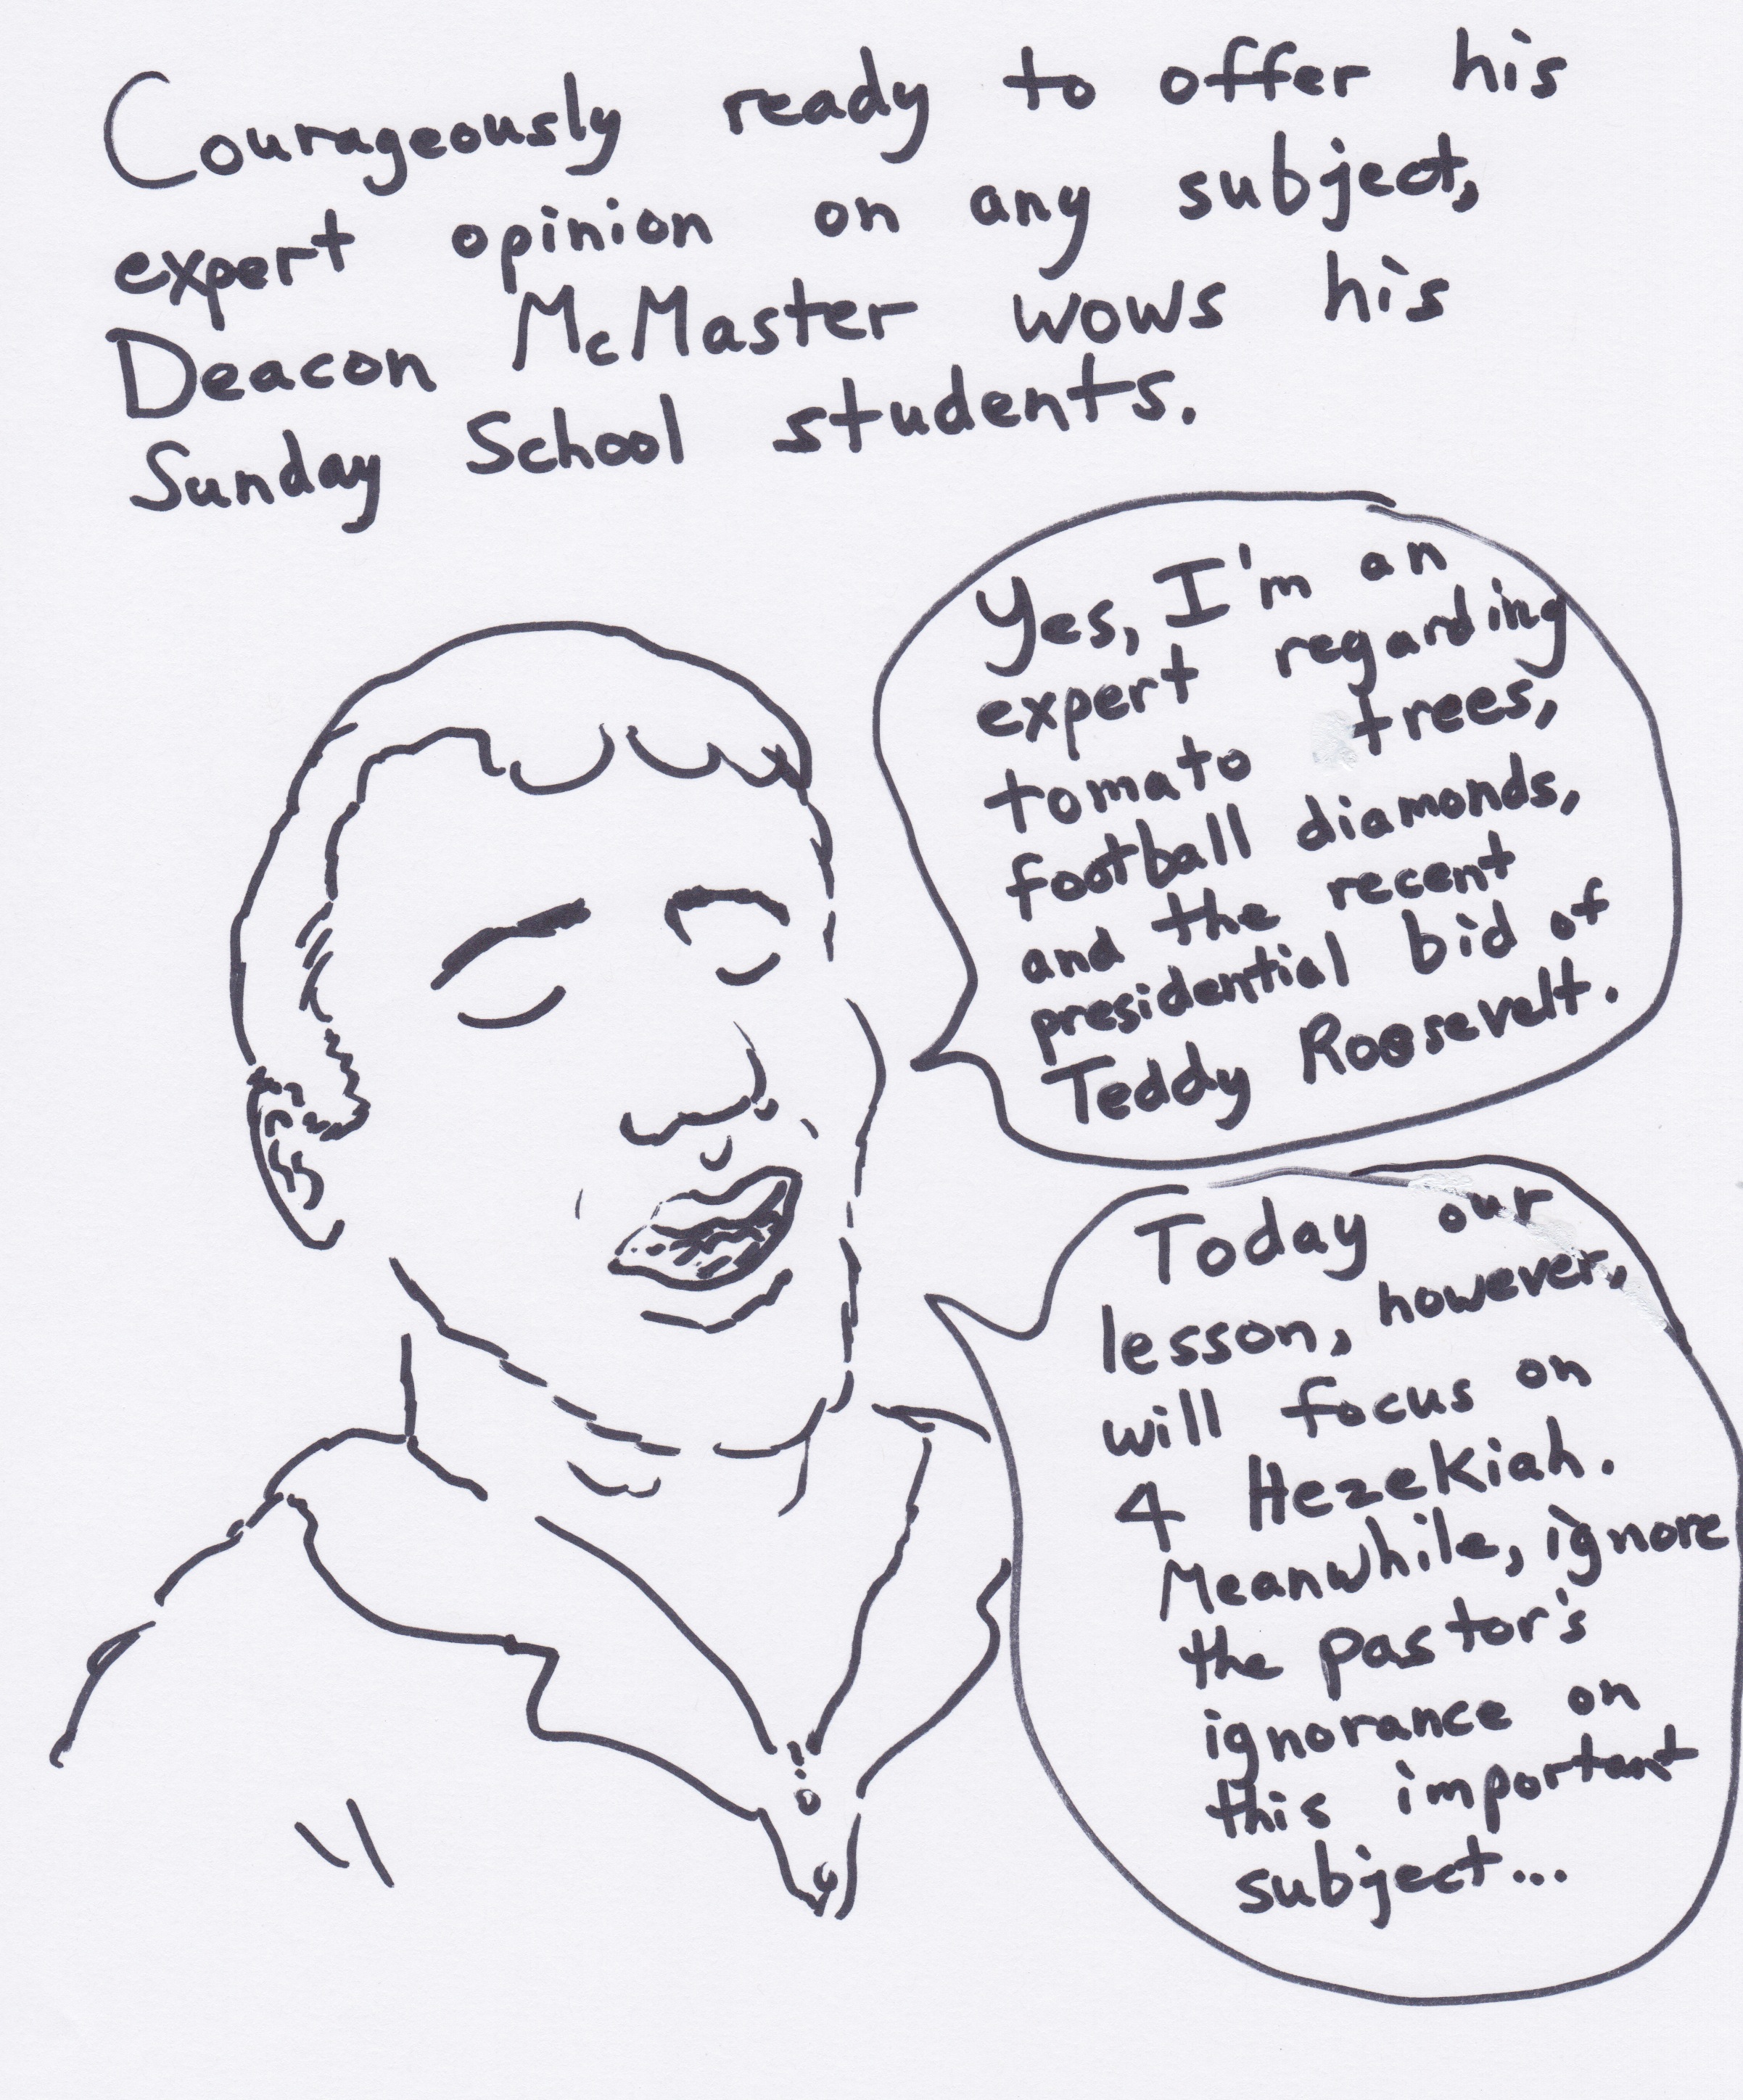 Courageously ready to offer his
expert opinion on any subject,
Deacon McMaster wows his
Sunday School students.
Yes, I'm an
expert regarding
tomato trees,
football diamonds,
and the recent
presidential bid of
Teddy Roosevelt.
Today our
lesson, however,
will focus on
4 Hezekiah.
Meanwhile, ignore
the pastor's
ignorance on
this important
subject...